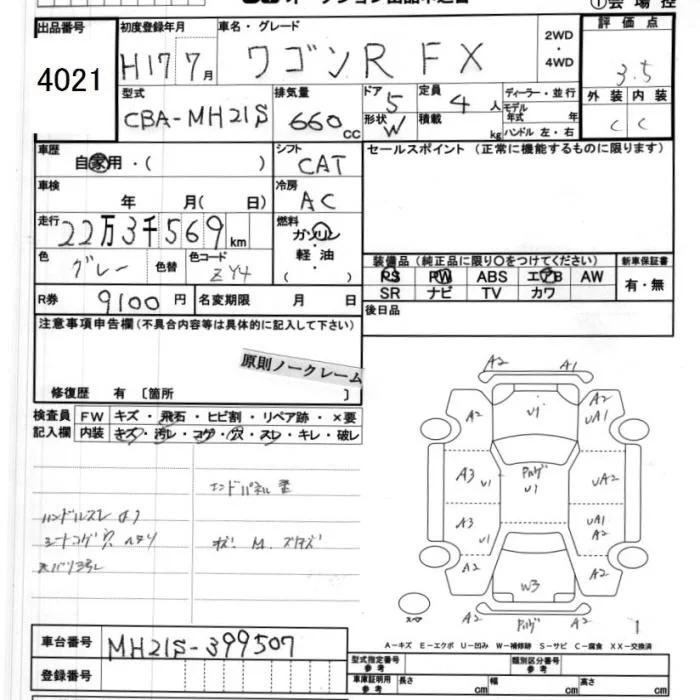 出品番号 4021
初度登録年月 H17 7月
車名・グレード ワゴンR FX
2WD・4WD
評価点 3.5
外装 C 内装 C
型式 CBA-MH21S
排気量 660cc
ドア 5 形状 W
定員 4人 積載 kg
ディーラー・並行
モデル年式 年式
ハンドル 左・右
車歴 自家用・( )
シフト CAT
セールスポイント (正常に機能するものに限ります)
車検 年 月( 日)
冷房 AC
走行 22万3千569km
燃料 ガソリン 軽油 ( )
色 グレー 色替 色コード ZY4
装備品 (純正品に限り〇をつけてください) 新車保証書
PS PW ABS エアB AW 有・無
SR ナビ TV カワ
R券 9100円 名変期限 月 日
後日品
注意事項申告欄 (不具合内容等は具体的に記入して下さい)
原則ノークレーム
修復歴 有 〔箇所 〕
検査員記入欄 FW キズ・飛石・ヒビ割・リペア跡・×要
内装 キズ・汚レ・コゲ・穴・スレ・キレ・破レ
エンドパネル
ハンドルスレ
シートコゲ穴 ヘタリ
A2 A1
A2 U1 A2 UA1
A3 U1 U1 UA2
A3 U1 UA1 A2
A2 W3 A2
スペア A2 A2 1
A-キズ E-エクボ U-凹み W-補修跡 S-サビ C-腐食 XX-交換済
車台番号 MH21S-399507
型式指定番号 参考 類別区分番号 参考
登録番号
車庫証明用 参考 長さ cm 幅 cm 高さ cm